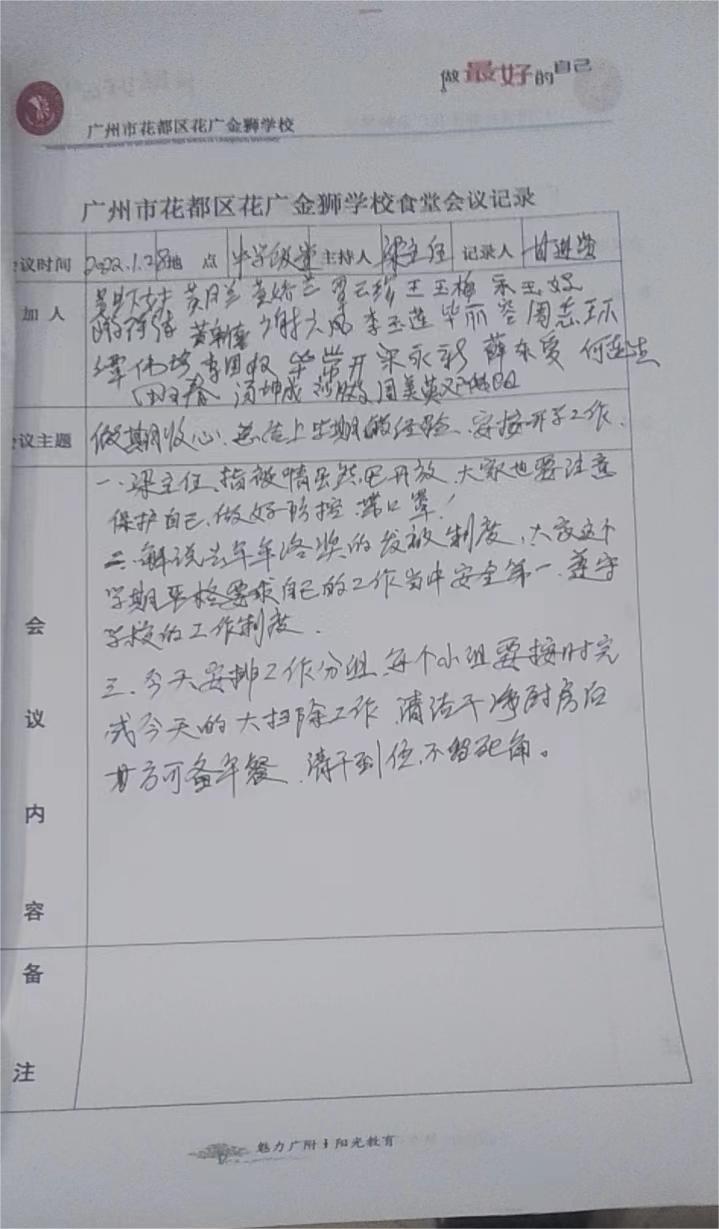 做最好的自己
广州市花都区花广金狮学校
广州市花都区花广金狮学校食堂会议记录
会议时间 2022.1.28 地点 中学饭堂 主持人 梁主任 记录人
加人 黄月兰 王玉梅
谢六凤 李玉莲 毕丽 周志环
李田 毕常开 梁永彩 薛东爱
汤坤成 周美英
会议主题 做期收心、总结上学期的经验、安按开学工作.
一、梁主任、指被情虽然已开放、大家也要注意
保护自己、做好防控、带口罩!
二、解说去年年终奖的发放制度、大家这个
学期严格要求自己的工作当中安全第一、遵守
学校的工作制度.
三、今天安排工作分组、每个小组要按时完
成今天的大扫除工作、清洁干净厨房后
方可备午餐、清干到位、不留死角。
会议内容
备注
魅力广附 阳光教育